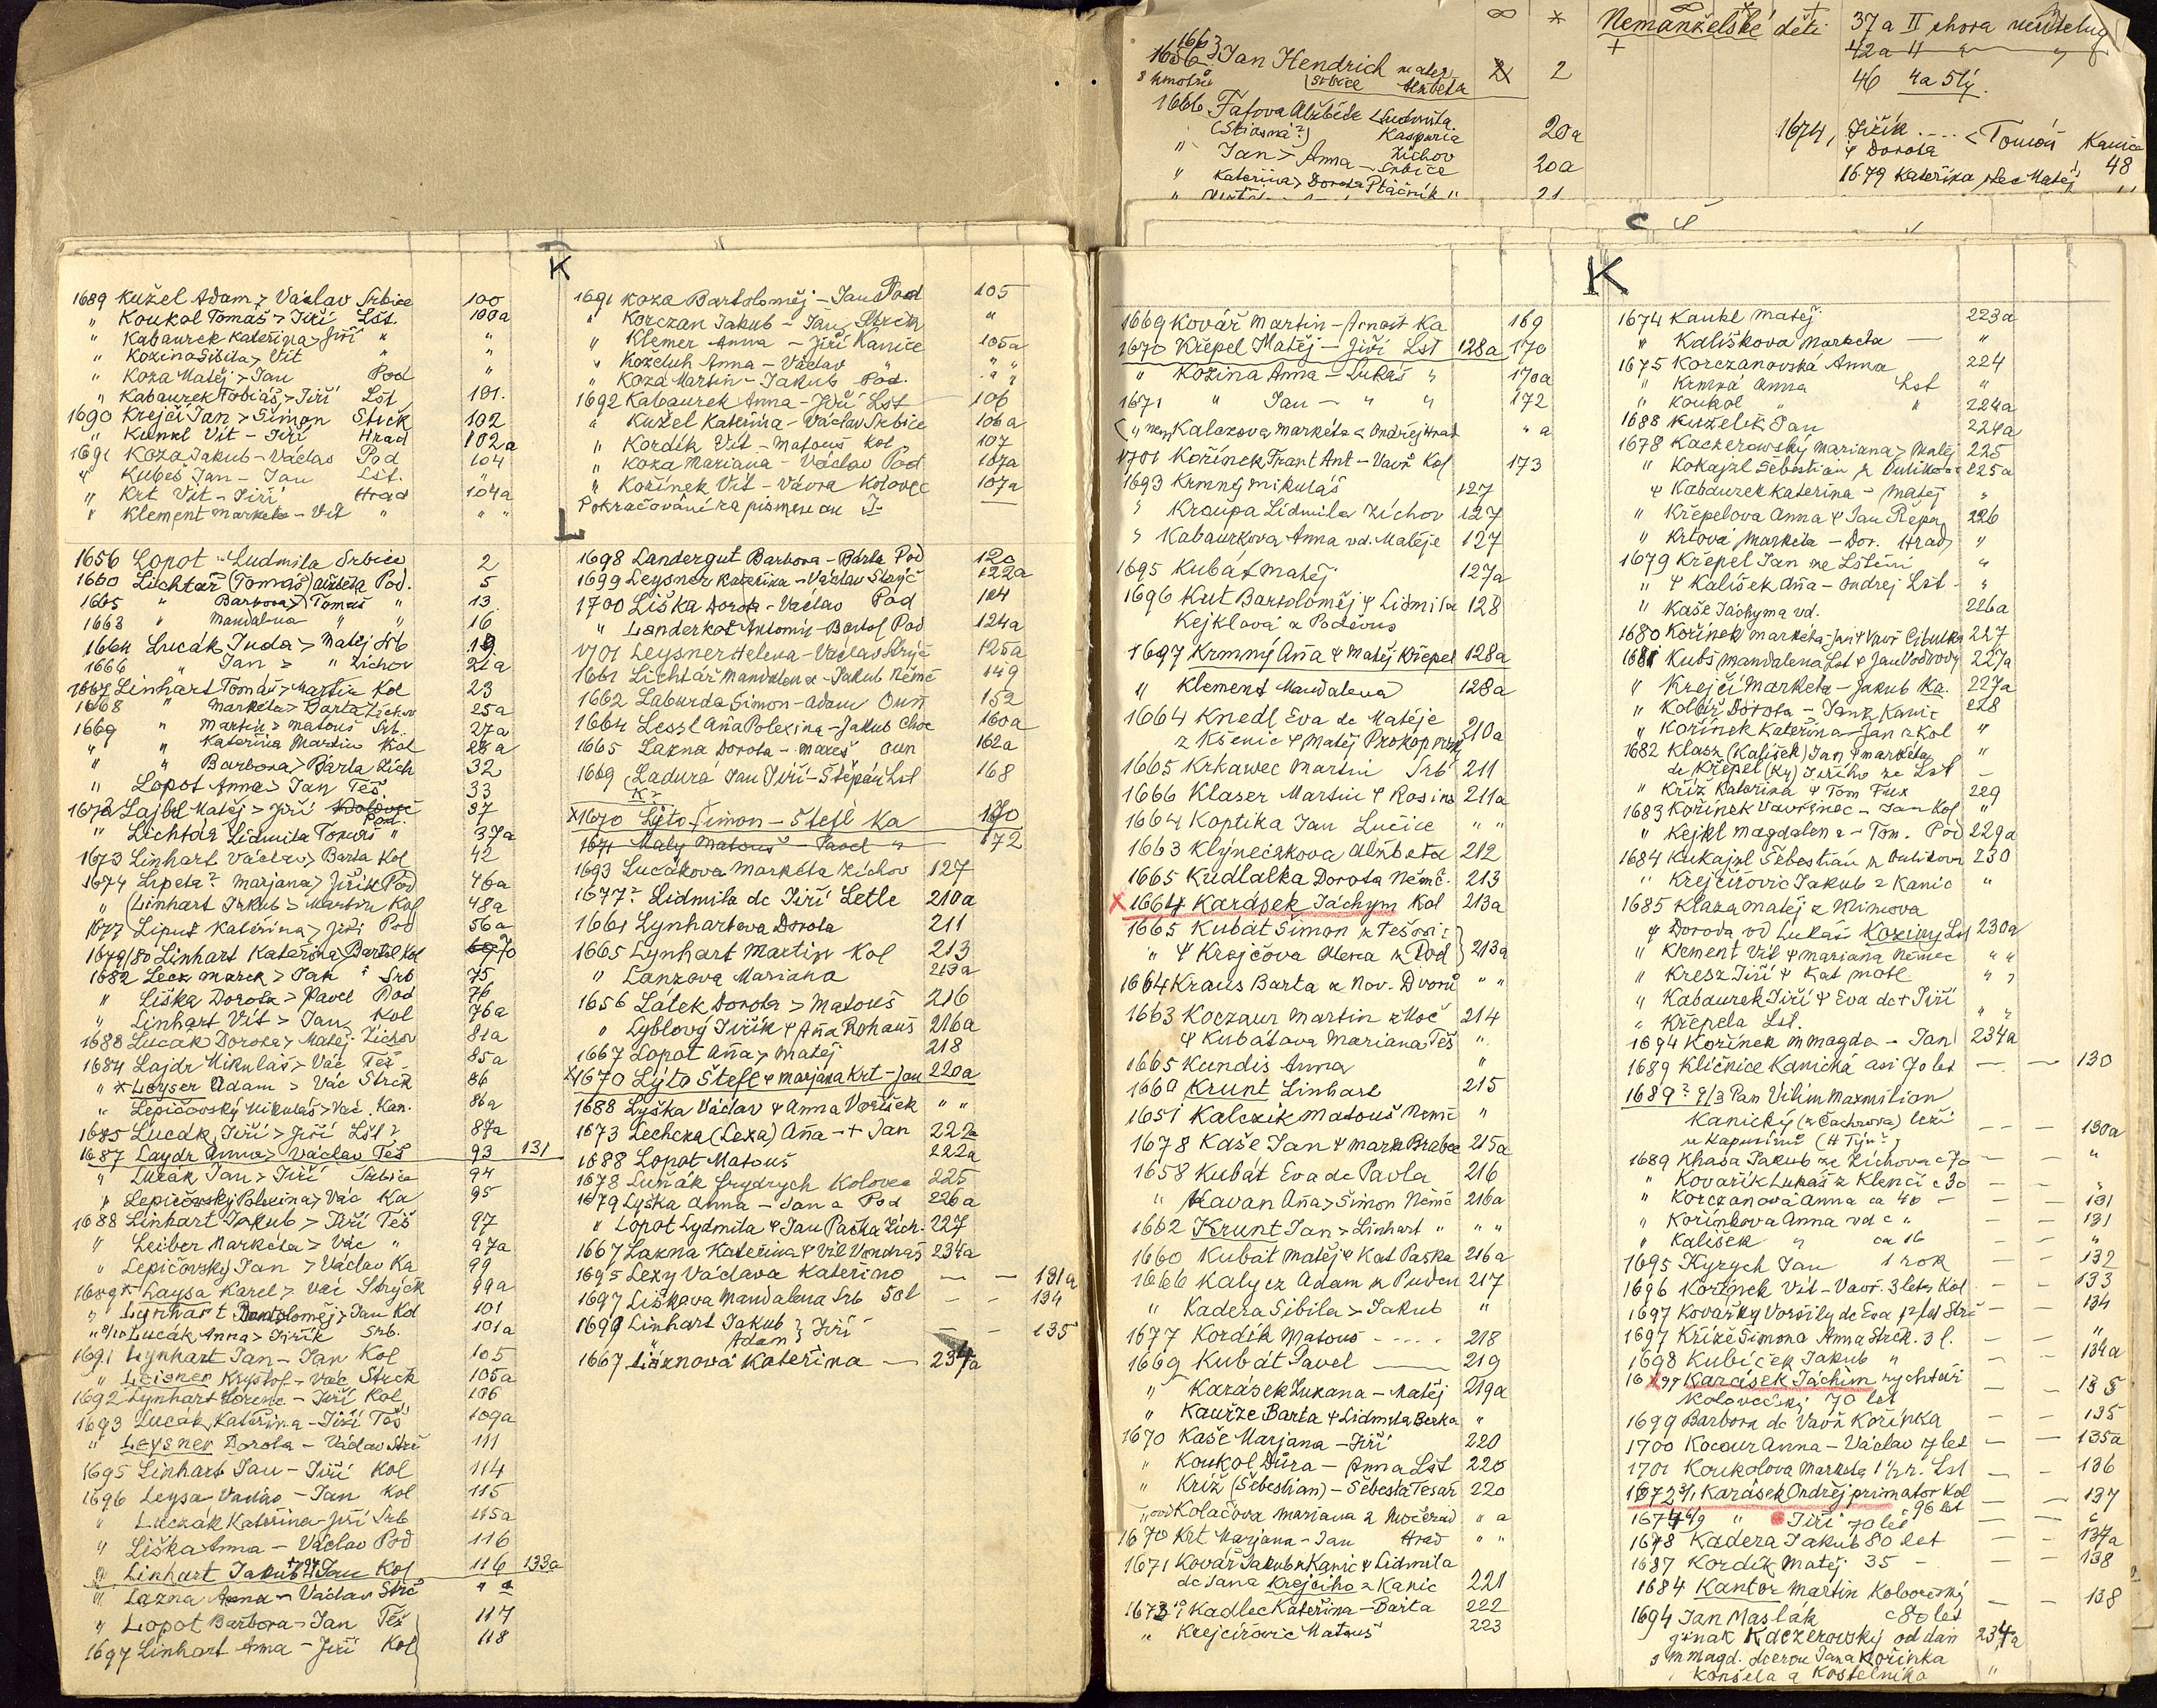 K
1689 Kužel Adam > Václav Srbice 100
" Koukol Tomáš > Jiří Lšt. 100a
" Kabaurek Kateřina > Jiří " "
" Kozina Sibila > Vít "
" Koza Matěj > Jan Pod "
" Kabaurek Tobiáš > Jiří Lšt 101.
1690 Krejčí Jan > Šimon Strčk 102
" Kunkl Vít – Jiří Hrad 102a
1691 Koza Jakub – Václav Pod 104
" Kubeš Jan – Jan Lšt. "
" Krt Vít – Jiří Hrad 104a
" Klement Marketa – Vít " " "
1691 Koza Bartoloměj – Jan Pod 105
" Korczan Jakub – Jan Strčk "
" Klemer Anna – Jiří Kanice 105a
" Koželuh Anna – Václav " " "
" Koza Martin – Jakub Pod. " "
1692 Kabaurek Anna – Jiří Lšt 106
" Kužel Kateřina – Václav Srbice 106a
" Kordík Vít – Matouš Kol 107
" Koza Mariana – Václav Pod 107a
" Kořínek Vít – Vávra Kolovec 107a
Pokračování za písmenem
L
1656 Lopot – Ludmila Srbice 2
1660 Lichtář (Tomáš) Alžběta Pod. 5
1665 " Barbora > Tomáš " 13
1663 " Mandalena " " 16
1664 Lucák Juda > Matěj Srb 19
1666 " Jan > " Zíchov 21a
1667 Linhart Tomáš > Martin Kol 23
1668 " Marketa > Barta Zíchov 25a
1669 " Martin > Matouš Srb. 27a
" " Kateřina Martin Kol 28a
" " Barbora > Barta Zích 32
" Lopot Anna > Jan Těš. 33
1672 Lajbl Matěj > Jiří Kolovec Pod. 37
" Lichtár Lidmila Tomáš " 37a
1673 Linhart Václav > Barta Kol 42
1674 Lipeta? Marjana > Jiřík Pod 46a
" (Linhart Jakub > Martin Kol 48a
1677 Liput Kateřina > Jiří Pod 56a
1679/80 Linhart Kateřina > Bartol Kol 70
1682 Lecz Marek > Jan Srb 75
" Liška Dorota > Pavel Pod 76
" Linhart Vít > Jan Kol 76a
1683 Lucák Dorota > Matěj Zíchov 81a
1684 Lajdr Mikuláš > Vác Těš 85a
" * Leyser Adam > Vác Strčk 86
" Lepičovský Mikuláš > Vác. Kan. 86a
1685 Lucák Jiří > Jiří Lšt? 87a
1687 Laydr Anna > Václav Těš 93 131
" Lucák Jan > Jiří Srbice 94
" Lepičovský Polexina > Vác Ka 95
1688 Linhart Jakub > Jiří Těš 97
" Leiber Markéta > Vác " 97a
" Lepičovský Jan > Václav Ka 99
1689 * Laysa Karel > Vác Strýčk 99a
" Lynhart Bartoloměj > Jan Kol 101
" Lucák Anna > Jiřík Srb. 101a
1691 Lynhart Jan – Jan Kol 105
" Leisner Kryštof – Vác Strčk 105a
1692 Lynhart Lorenc – Jiří Kol 106
1693 Lucák Kateřina – Jiří Těš 109a
" Leysner Dorota – Václav Strč 111
1695 Linhart Jan – Jiří Kol 114
1696 Leysa Václav – Jan Kol 115
" Luczák Kateřina – Jiří Srb 115a
" Liška Anna – Václav Pod 116
" Linhart Jakub Jan Kol 116 133a
" Lazna Anna – Václav Strč " a
" Lopot Barbora – Jan Těš 117
1697 Linhart Anna – Jiří Kol 118
1698 Landergut Barbora – Bárta Pod 120
1699 Leysner Kateřina – Václav Strýč 122a
1700 Liška Dorota – Václav Pod 124
" Landerkot Antonín – Bartol Pod 124a
1701 Leysner Helena – Václav Strýč 125a
1661 Lichtář Mandalena – Jakub Němč 149
1662 Laburda Šimon – Adam Oun 152
1664 Lessl Aña Polexina – Jakub Choc 160a
1665 Lazna Dorota – Mareš Oun 162a
1669 Ladura Jan Jiří – Štěpán Lšt 168
K?
x1670 Lýto Šimon – Štefl Ka 170
1671 Malý Matouš – Pavel " 172
1693 Lucákova Markéta Zíchov 127
1677? Lidmila dc Jiří Letle 210a
1661 Lynhartova Dorota 211
1665 Lynhart Martin Kol 213
" Lanzova Mariana 213a
1656 Látek Dorota > Matouš 216
" Lyblový Jiřík & Aña Rohauš 216a
1667 Lopot Aña > Matěj 218
x1670 Lýto Štefl & Marjana Krt – Jan 220a
1688 Lyška Václav & Anna Voříšek " "
1673 Lechcza (Lexa) Aña – + Jan 222a
1688 Lopot Matouš 222a
1678 Luňák Frydrych Kolovec 225
1679 Lyška Anna – Jana Pod 226a
" Lopot Lydmila & Jan Paška Zích. 227
1667 Lazna Kateřina & Vít Vondraš 234a
1695 Lexy Václava Kateřino — — 131a
1697 Liškova Mandalena Srb 50l – – 134
1699 Linhart Jakub } Jiří — — 135
" Adam
1667 Láznová Kateřina — 234a
∞ * +
1663
1656 Jan Hendrich mater Alžběta 2 2
8 kmotrů Srbice
1666 Fafova Alžběta < Ludmila 20a
(Šťasná?) Kasparia
" Jan > Anna – Zíchov Srbice 20a
" Kateřina > Dorota Ptáčník " 21
Nemanželské děti
37a II shora
42a 4 " "
46 4a 5tý.
1674, Jiřík .... < Tomáš Kanice
& Dorota 48
1679 Kateřina otec Matěj "
C
K
1669 Kovář Martin – Arnošt Ka 169
1670 Křepel Matěj – Jiří Lšt 128a 170
" Kozina Anna – Lukáš " 170a
1671 " Jan – " " 172
( " nem Kalazova Markéta < Ondřej Hrad " a
1701 Kořínek Frant Ant – Vavř Kol 173
1693 Krmný Mikuláš 127
" Kroupa Lidmila Zíchov 127
" Kabaurkova Anna vd. Matěje 127
1695 Kubát Matěj 127a
1696 Kut Bartoloměj & Lidmila 128
Kejklová z Poděvus
1697 Krmný Aña & Matěj Křepel 128a
" Klement Mandalena 128a
1664 Knedl Eva dc Matěje 210a
z Kšenic & Matěj Prokop
1665 Krkawec Martin Srb 211
1666 Klaser Martin & Rosina 211a
1664 Koptika Jan Lučice " "
1663 Klynečakova Alžběta 212
1665 Kudlalka Dorota Němč. 213
x 1664 Karásek Jáchym Kol 213a
1665 Kubát Šimon z Těšovic
" & Krejčova Alena z Pod } 213a
1664 Kraus Barta z Nov. Dvorů " "
1663 Koczaur Martin z Koč 214
& Kubátova Mariana Těš "
1665 Kundis Anna "
1660 Krunt Linhart 215
1651 Kalczik Matouš Němč "
1678 Kaše Jan & Marta Brabec 215a
1658 Kubát Eva dc Pavla 216
" Hlavan Aña > Šimon Němč 216a
1662 Krunt Jan > Linhart " " "
1660 Kubát Matěj & Kat Paška 216a
1666 Kalycz Adam z Puden 217
" Kadera Sibila > Jakub "
1677 Kordík Matouš – .... 218
1669 Kubát Pavel — 219
" Karásek Zuzana – Matěj 219a
" Kauřze Barta & Lidmila Berka "
1670 Kaše Marjana – Jiří 220
" Koukol Důra – Anna Lšt 220
" Kříž (Šebestian) – Šebesta Tesař 220
" Kolačova Mariana z Močerad " a
1670 Krt Marjana – Jan Hrad " "
1671 Kovář Jakub z Kanic & Lidmila
dc Jana Krejčího z Kanic 221
1673 Kadlec Kateřina – Barta 222
" Krejčírovic Matouš 223
1674 Kaukl Matěj 223a
" Kališkova Marketa — "
1675 Korczanovská Anna 224
" Krmná Anna Lšt "
" Koukol " " 224a
1688 Kuželík Jan 224a
1678 Kaczerowský Mariana > Matěj 225
" Kokajzl Šebestian z Dulikova 225a
& Kabaurek Kateřina – Matěj "
" Křepelova Anna & Jan Řepa 226
" Krtová Markéta – Dor. Hrad "
1679 Křepel Jan ze Lštění "
" & Kališek Aña – Ondřej Lšt – "
" Kaše Jáchyma vd. 226a
1680 Kořínek Markéta – Jan & Vavř Cibulka 227
1681 Kubš Mandalena Lšt & Jan Vodvody 227a
" Krejčí Marketa – Jakub Ka. 227a
" Kolář Dorota – Jan z Kanic 228
" Kořínek Kateřina – Jan z Kol "
1682 Klasz (Kališek) Jan & Markéta "
dc Křepel (Ky) Jiřího ze Lšt –
" Kříž Kateřina & Tom Fux 229
1683 Kořínek Vavřinec – Jan Kol "
" Kejkl Magdalena – Tom. Pod 229a
1684 Kukajzl Šebestián z Dulikova 230
" Krejčířovic Jakub z Kanic "
1685 Klaza Matěj z Mimova
& Doroda vd Lukáš Koziny Lšt 230a
" Klement Vít & Mariana Němec " "
" Kresz Jiří & Kat Motl " "
" Kabaurek Jiří & Eva dc + Jiří
" Křepela Lšt. " "
1694 Kořínek M Magda – Jan 234a
1689 Kličnice Kanická asi 70 let — — 130
1689? 9/3 Pan Vilím Maxmilian
Kanický (z Čachrova) leží
u Kapucínů (H Týn?) – – – 130a
1689 Khasa Jakub ze Zíchova c 70 — — "
" Kovařík Lukáš z Klenčí c 30 — — "
" Korczanová Anna ca 40 – — — 131
" Kořínkova Anna vd c " — — 131
" Kališek " ca 16 — — "
1695 Kyrych Jan 1 rok — — 132
1696 Kořínek Vít – Vavř. 3 lets Kol – – 133
1697 Kovařky Voršily dc Eva 12 let Strč – – 134
1697 Kříže Šimona Anna Strčk. 3 l. — — "
1698 Kubíček Jakub " – – 134a
16x99 Karásek Jáchim rychtář
Kolovečský 70 let — — 135
1699 Barbora dc Vavř Kořínka — — 135
1700 Kocour Anna – Václav 7 let — — 135a
1701 Koukolova Marketa 1 1/2 r. Lšt — — 136
1672 3/1 Karásek Ondřej primator Kol
c 96 let — — 137
1674 6/9 " Jiří 70 let — — "
1678 Kadera Jakub 80 let — — 137a
1687 Kordík Matěj 35 – — — 138
1684 Kantor Martin Kolovečský
c 80 let — — 138
1694 Jan Maslák
jinak Kaczerowský oddán 234a
s M Magd. dcerou Jana Kořínka
Konšela a Kostelníka "